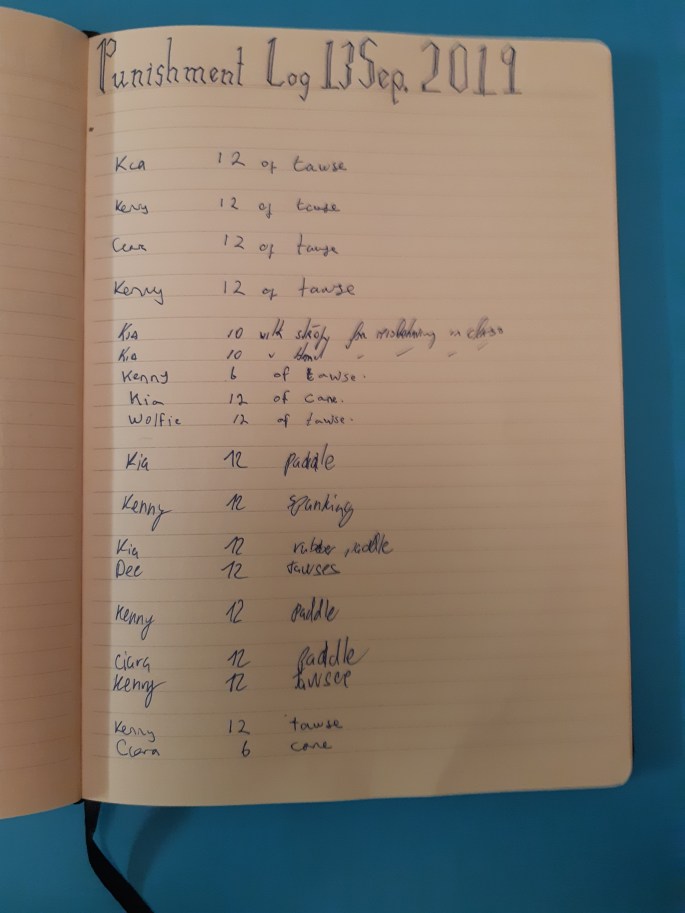 Punishment Log 13 Sep. 2019
Kia 12 of tawse
Kenny 12 of tawse
Ciara 12 of tawse
Kenny 12 of tawse
Kia 10 with for in class
Kia 10 "
Kenny 6 of tawse.
Kia 12 of cane.
Wolfie 12 of tawse.
Kia 12 paddle
Kenny 12 spanking
Kia 12 rubber paddle
Dee 12 tawses
Kenny 12 paddle
Ciara 12 paddle
Kenny 12
Kenny 12 tawse
Ciara 6 cane